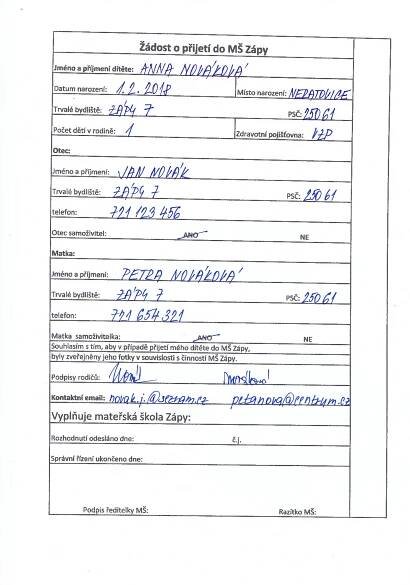 Žádost o přijetí do MŠ Zápy
Jméno a příjmení dítěte: ANNA NOVÁKOVÁ
Datum narození: 1.2.2018 Místo narození: NERATOVICE
Trvalé bydliště: ZÁPY 7 PSČ: 25061
Počet dětí v rodině: 1 Zdravotní pojišťovna: VZP
Otec:
Jméno a příjmení: JAN NOVÁK
Trvalé bydliště: ZÁPY 7 PSČ: 25061
telefon: 721 123 456
Otec samoživitel: ANO NE
Matka:
Jméno a příjmení: PETRA NOVÁKOVÁ
Trvalé bydliště: ZÁPY 7 PSČ: 25061
telefon: 721 654 321
Matka samoživitelka: ANO NE
Souhlasím s tím, aby v případě přijetí mého dítěte do MŠ Zápy,
byly zveřejněny jeho fotky v souvislosti s činností MŠ Zápy.
Podpisy rodičů:
Kontaktní email: novak.j.@seznam.cz petanova@centrum.cz
Vyplňuje mateřská škola Zápy:
Rozhodnutí odesláno dne: č.j.
Správní řízení ukončeno dne:
Podpis ředitelky MŠ: Razítko MŠ: